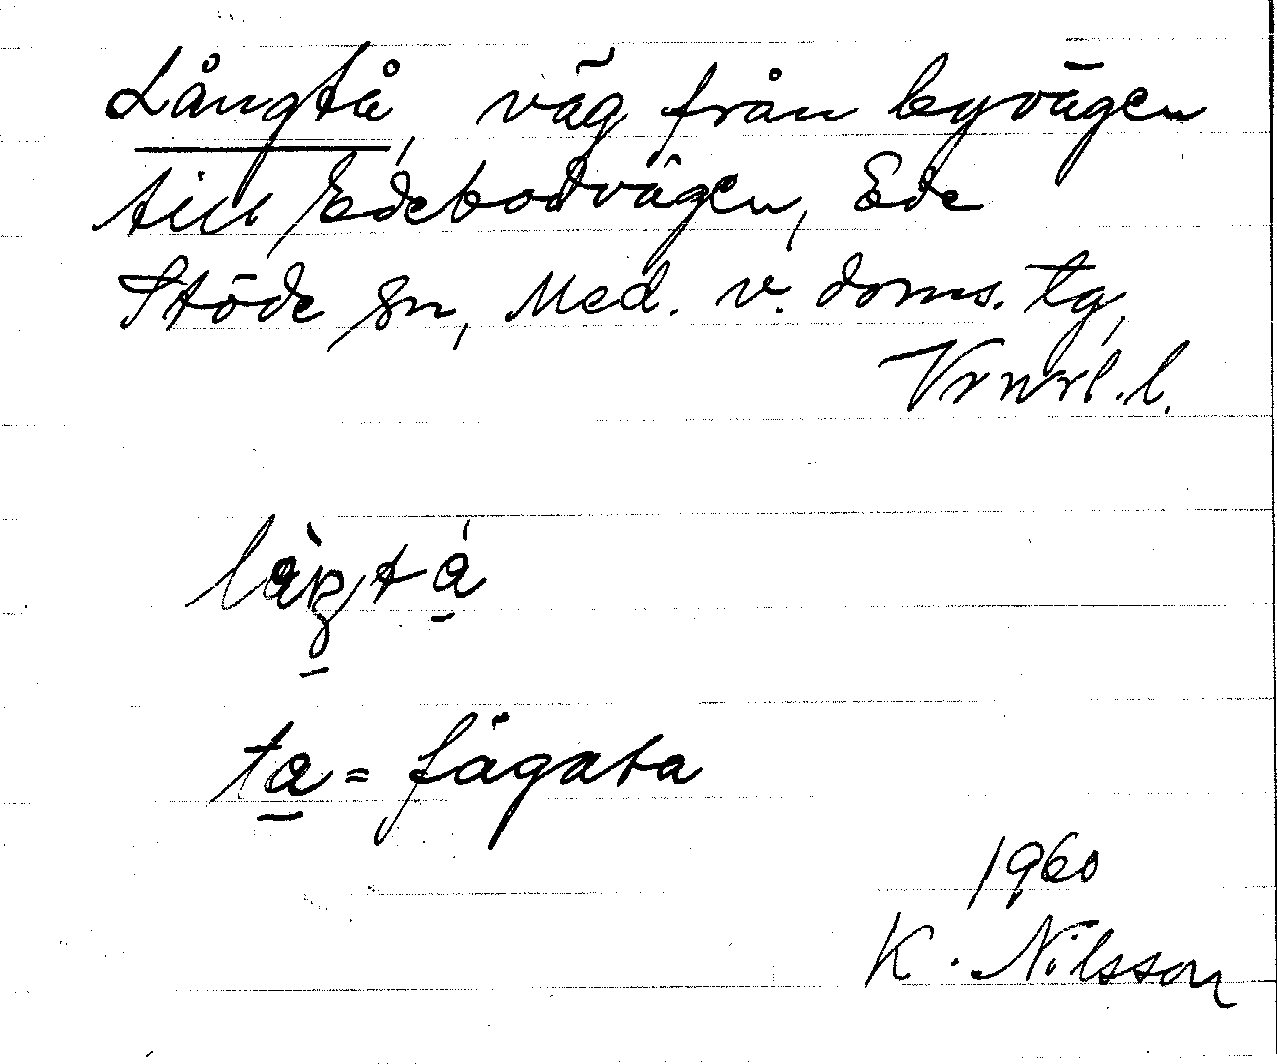 Långtå, väg från byvägen
till Edebodvägen, Ede
Stöde sn, Med. v. doms. tg,
Vrnrl. l.
tɑ = fägata
1960
K. Nilsson